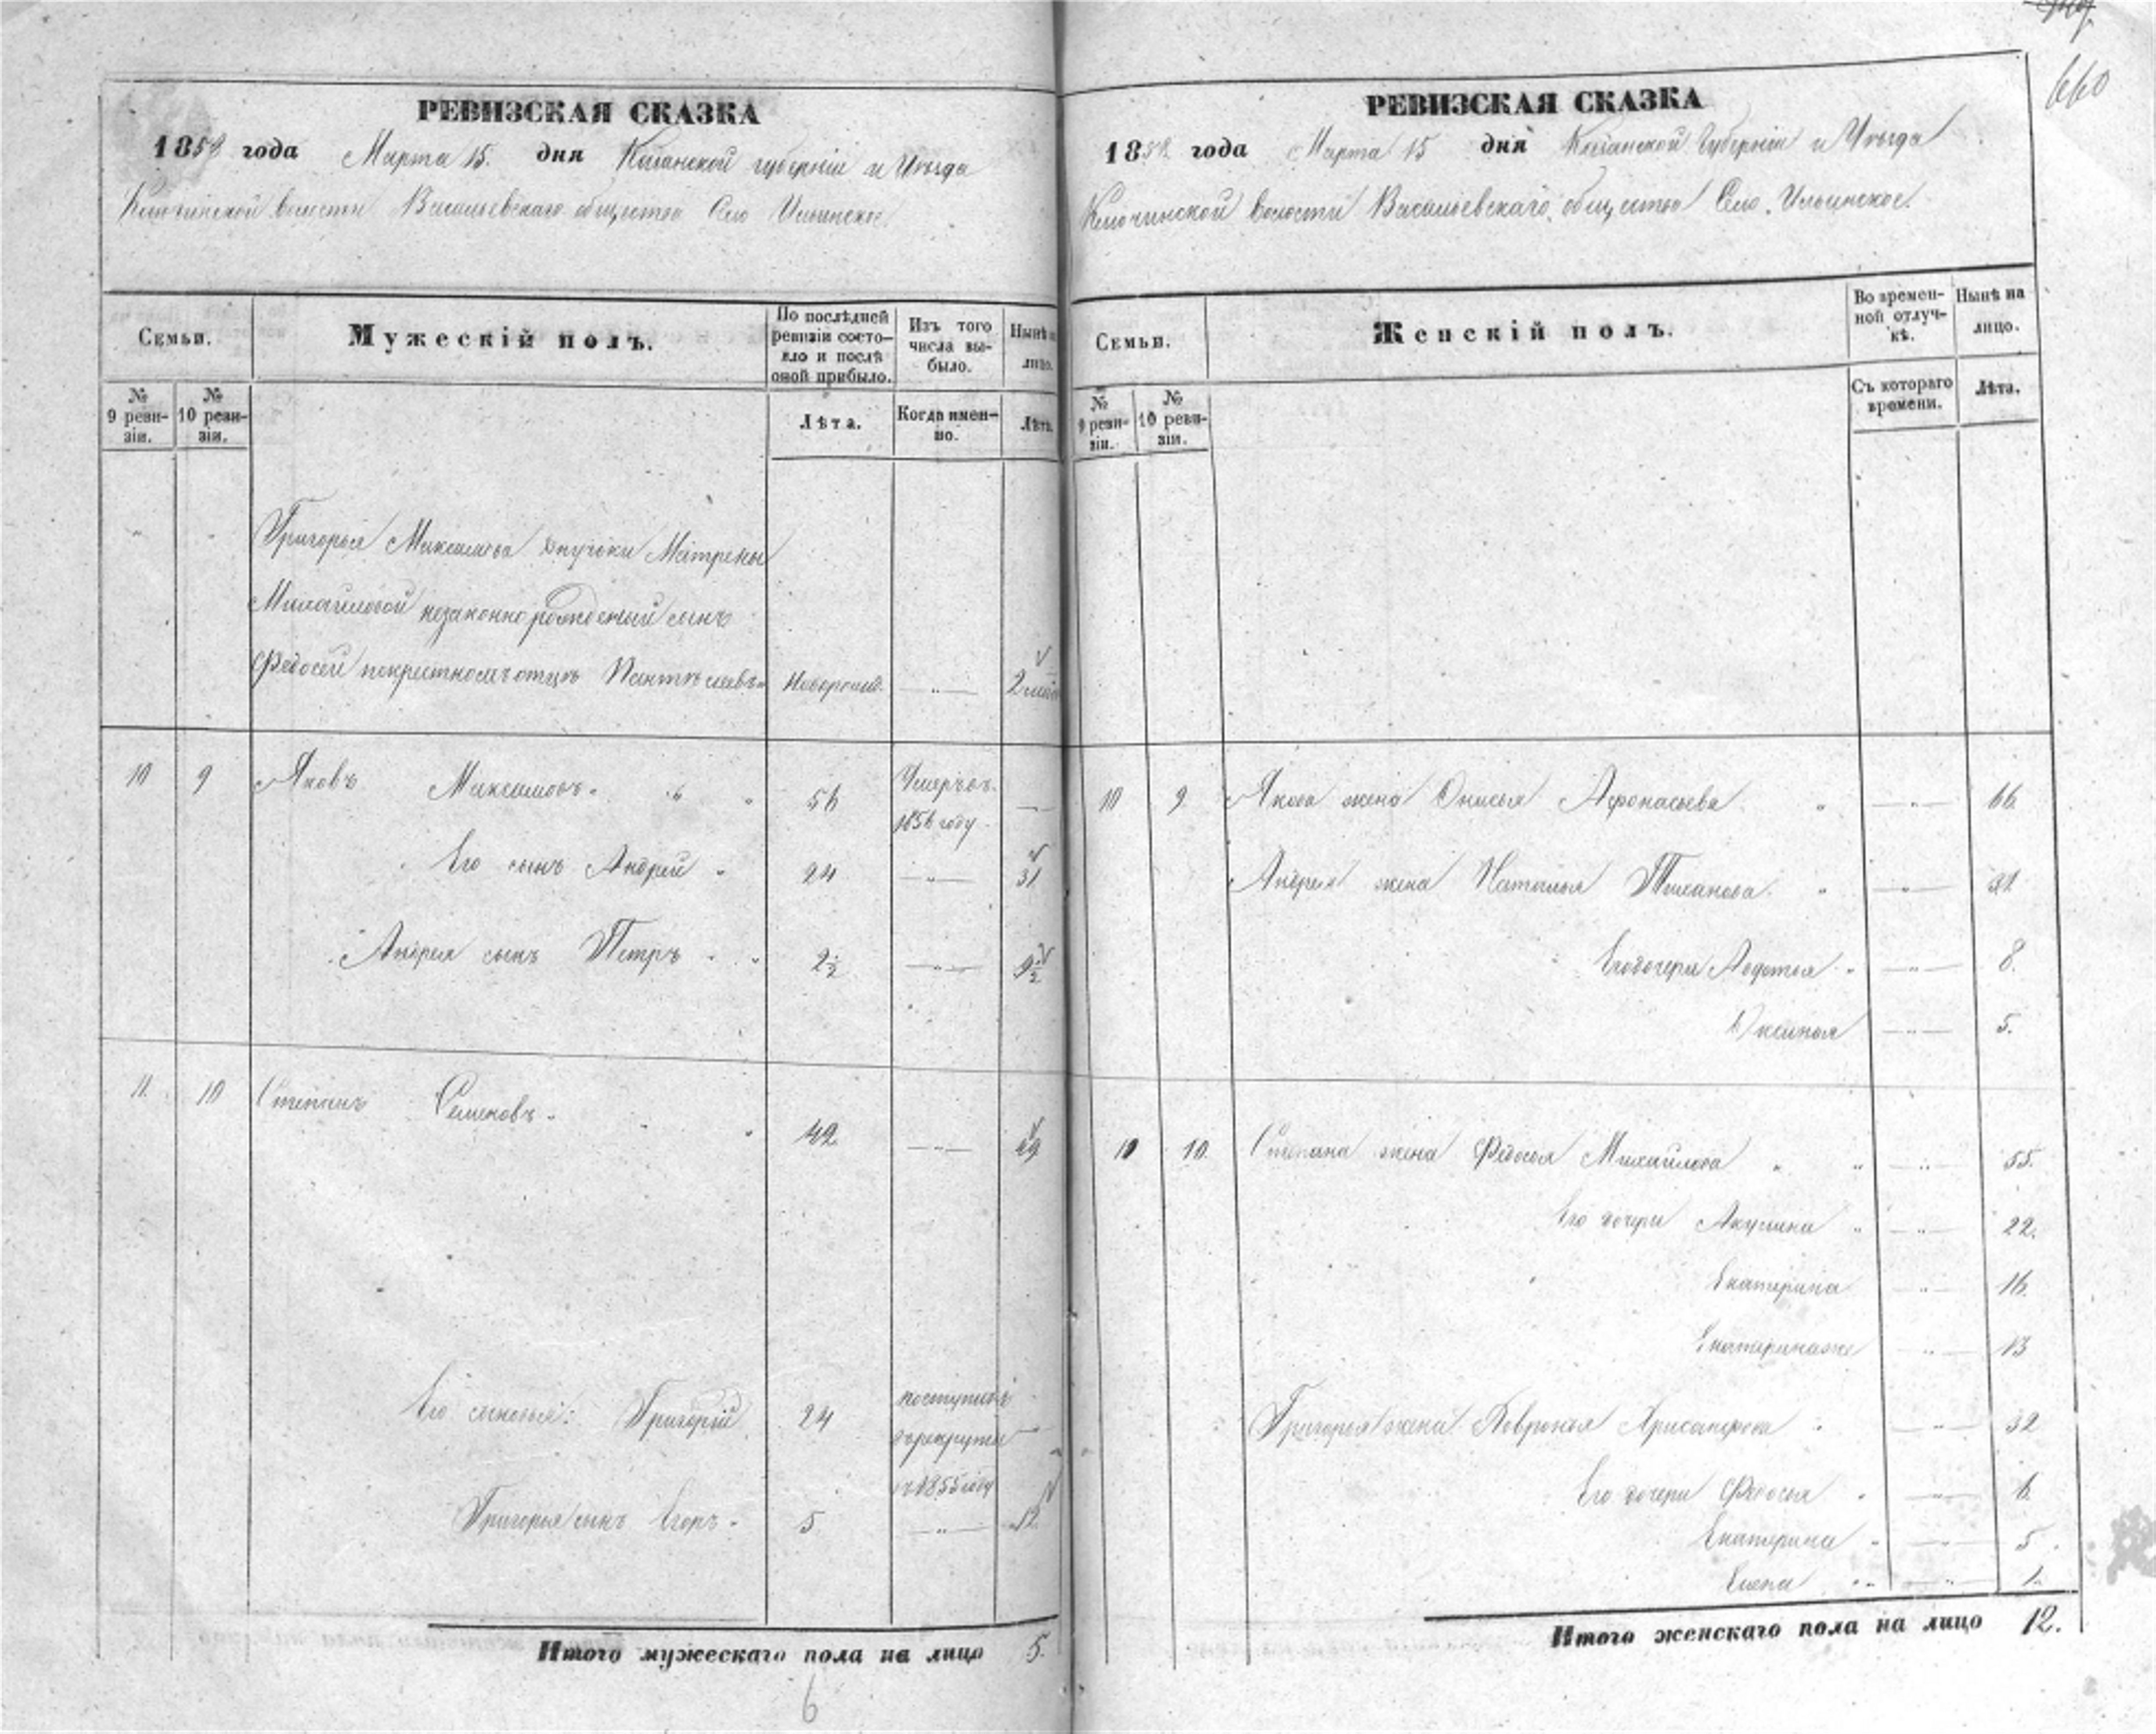 660
РЕВИЗСКАЯ СКАЗКА
1858 года Марта 15. дня Казанской губерніи и Уѣзда
Ключинской волости Васильевскаго общества Село Ильинское
Семьи.
Мужескій полъ.
По послѣдней ревизіи состояло и послѣ оной прибыло.
Изъ того числа выбыло.
Нынѣ на лицо.
№ 9 ревизіи.
№ 10 ревизіи.
Лѣта.
Когда именно.
Лѣта.
Григорья Максимова внучки Матрены
Михайловой незаконно рожденый сынъ
Федосей по крестному отцу Новорожд. 2
10 9 Яковъ Максимовъ 56 Умеръ въ 1856 году
Его сынъ Андрей 24 31
Андрея сынъ Петръ 2½ 9½
11. 10 Степанъ Семеновъ 42 49
Его сыновья: Григорій 24 поступилъ в рекруты въ 1855 году
Григорья сынъ Егоръ 5 12
Итого мужескаго пола на лицо 5.
6
РЕВИЗСКАЯ СКАЗКА
1858 года Марта 15 дня Казанской Губерніи и Уѣзда
Ключинской волости Васильевскаго общества Село Ильинское.
Семьи.
Женскій полъ.
Во временной отлучкѣ.
Нынѣ на лицо.
№ 9 ревизіи.
№ 10 ревизіи.
Съ котораго времени.
Лѣта.
10 9. Якова жена Анисья Афонасьева 66.
Андрея жена Наталья 31.
Его дочери Авдотья 8.
Аксинья 5.
10 10. Степана жена Федосья Михайлова 55.
Его дочери Акулина 22.
Екатерина 16.
Екатерина же 13
Григорья жена Хрисанфова 32
Его дочери Федосья 6.
Екатерина 5.
Елена 1.
Итого женскаго пола на лицо 12.